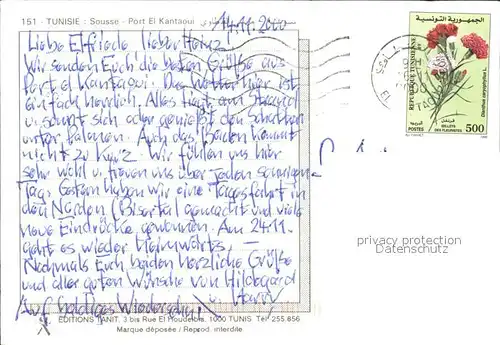 151 - TUNISIE : Sousse - Port El Kantaoui
14.11.2000
Liebe Elfriede lieber Heinz
Wir senden Euch die besten Grüße aus
Port el Kantaoui. Das Wetter hier ist
einfach herrlich. Alles liegt am Strand
u. sonnt sich oder genießt den Schatten
unter Palmen. Auch das Baden kommt
nicht zu kurz. Wir fühlen uns hier
sehr wohl u. freuen uns über jeden sonnigen
Tag. Gestern haben wir eine Tagesfahrt in
den Norden (Biserta) gemacht und viele
neue Eindrücke gewonnen. Am 24.11.
geht es wieder heimwärts. –
Nochmals Euch beiden herzliche Grüße
und alles guten Wünsche von Hildegard
u. Harry
Auf baldiges Wiedersehen!
EDITIONS TANIT. 3 bis Rue El Houdeibia. 1000 TUNIS Tél 255.656
Marque déposée / Reprod. interdite
الجمهورية التونسية
REPUBLIQUE TUNISIENNE
Dianthus caryophyllus L.
قرنفل
ŒILLETS DES FLEURISTES
POSTES
البريد
500
privacy protection
Datenschutz